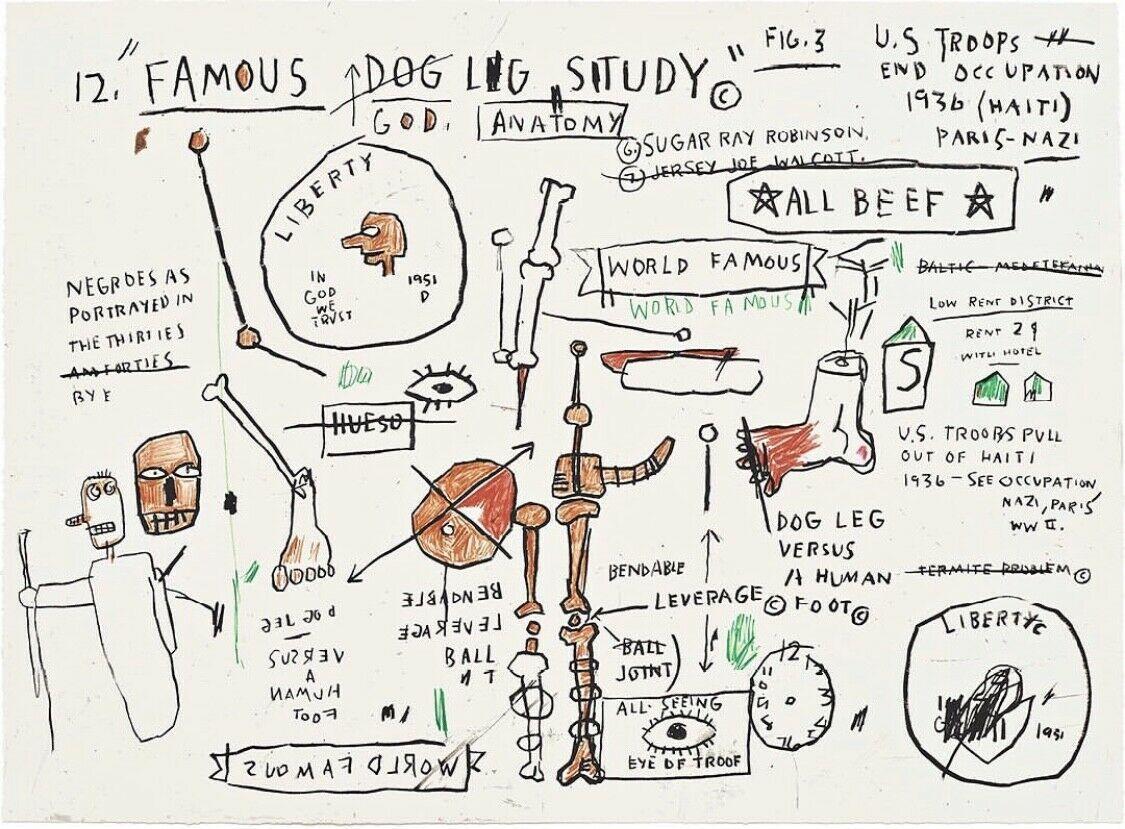 12. "FAMOUS DOG LEG STUDY" ©
GOD.
ANATOMY
FIG. 3
U.S TROOPS
END OCCUPATION
1936 (HAITI)
PARIS-NAZI
6. SUGAR RAY ROBINSON.
7. JERSEY JOE WALCOTT.
ALL BEEF
LIBERTY
IN
GOD
WE
TRUST
1951
D
WORLD FAMOUS
WORLD FAMOUS
NEGROES AS
PORTRAYED IN
THE THIRTIES
AM FORTIES
BY E
HUESO
BALTIC - MEDETERANIA
LOW RENT DISTRICT
RENT 2 9
WITH HOTEL
S
U.S. TROOPS PULL
OUT OF HAITI
1936 - SEE OCCUPATION
NAZI, PARIS
WW II.
TERMITE PROBLEM ©
DOG LEG
VERSUS
A HUMAN
FOOT ©
BENDABLE
LEVERAGE ©
BALL
JOINT)
BENDABLE
LEVERAGE
BALL
N T
DOG LEG
VERSUS
A
HUMAN
FOOT
ALL SEEING
EYE OF TROOF
12
LIBERTY
1951
WORLD FAMOUS